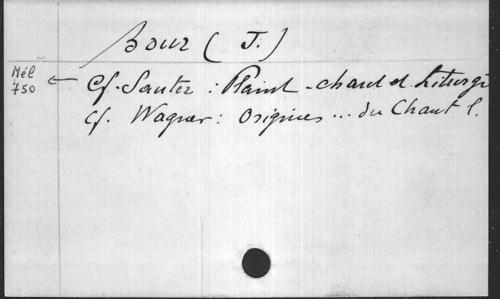 Bour (J.)
Mél
750
Cf. Sauter : Plaint-chant et Liturgi
Cf. Wagner : Origines ... du Chant l.